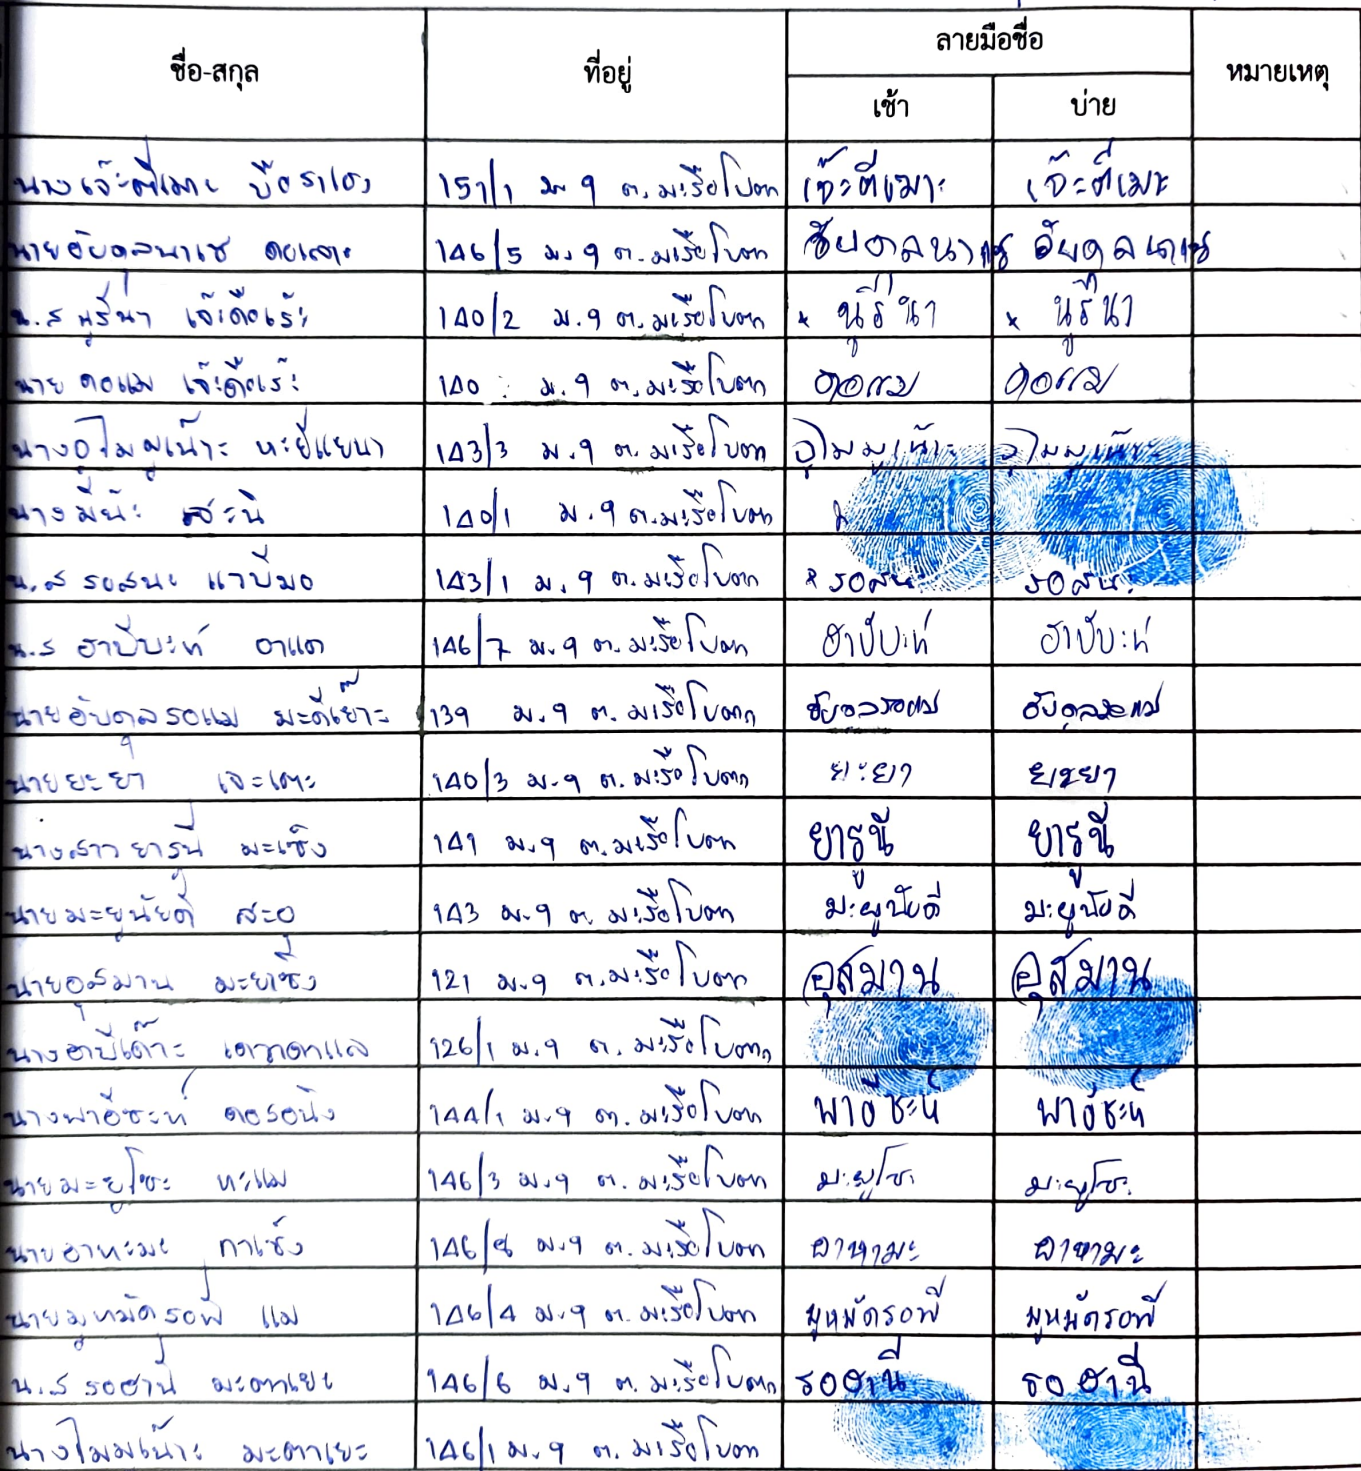 ชื่อ-สกุล ที่อยู่ ลายมือชื่อ หมายเหตุ
เช้า บ่าย
นางเจ๊ะตีเมาะ บือราเฮง 151/1 ม.9 ต.มะรือโบตก เจ๊ะตีเมาะ เจ๊ะตีเมาะ
นายอับดุลนาเซ ดอเลาะ 146/5 ม.9 ต.มะรือโบตก อับดุลนาเซ อับดุลนาเซ
น.ส นูรีนา เจ๊ะดือเร๊ะ 140/2 ม.9 ต.มะรือโบตก × นูรีนา × นูรีนา
นาย ดอแม เจ๊ะดือเร๊ะ 140 ม.9 ต.มะรือโบตก ดอแม ดอแม
นางอุไมมูเน๊าะ หะยีแยนา 143/3 ม.9 ต.มะรือโบตก อุไมมูเน๊าะ อุไมมูเน๊าะ
นางมีน๊ะ สะนิ 140/1 ม.9 ต.มะรือโบตก
น.ส รอสนะ แาบีมอ 143/1 ม.9 ต.มะรือโบตก × รอสนะ รอสนะ
น.ส ฮาบีบะห์ อาแด 146/7 ม.9 ต.มะรือโบตก ฮาบีบะห์ ฮาบีบะห์
นายอับดุลรอแม มะดีเย๊าะ 139 ม.9 ต.มะรือโบตก อับดุลรอแม อับดุลรอแม
นายยะยา เจะเตะ 140/3 ม.9 ต.มะรือโบตก ยะยา ยะยา
นางสาวยารูนี มะเซ็ง 141 ม.9 ต.มะรือโบตก ยารูนี ยารูนี
นายมะยูนัยดี สะอุ 143 ม.9 ต.มะรือโบตก มะยูนัยดี มะยูนัยดี
นายอุสมาน มะยาซิง 121 ม.9 ต.มะรือโบตก อุสมาน อุสมาน
นางฮาบีเด๊าะ เดวาดาแล 126/1 ม.9 ต.มะรือโบตก
นางพาอีซะห์ ดอรอนิง 144/1 ม.9 ต.มะรือโบตก พาอีซะห์ พาอีซะห์
นายมะยูโซะ หะแม 146/3 ม.9 ต.มะรือโบตก มะยูโซะ มะยูโซะ
นายอาหะมะ กาเซ็ง 146/8 ม.9 ต.มะรือโบตก อาหามะ อาหามะ
นายมูหมัดรอพี แม 146/4 ม.9 ต.มะรือโบตก มูหมัดรอพี มูหมัดรอพี
น.ส รอฮานี มะตาเยะ 146/6 ม.9 ต.มะรือโบตก รอฮานี รอฮานี
นางไมมเน๊าะ มะตาเยะ 146/1 ม.9 ต.มะรือโบตก